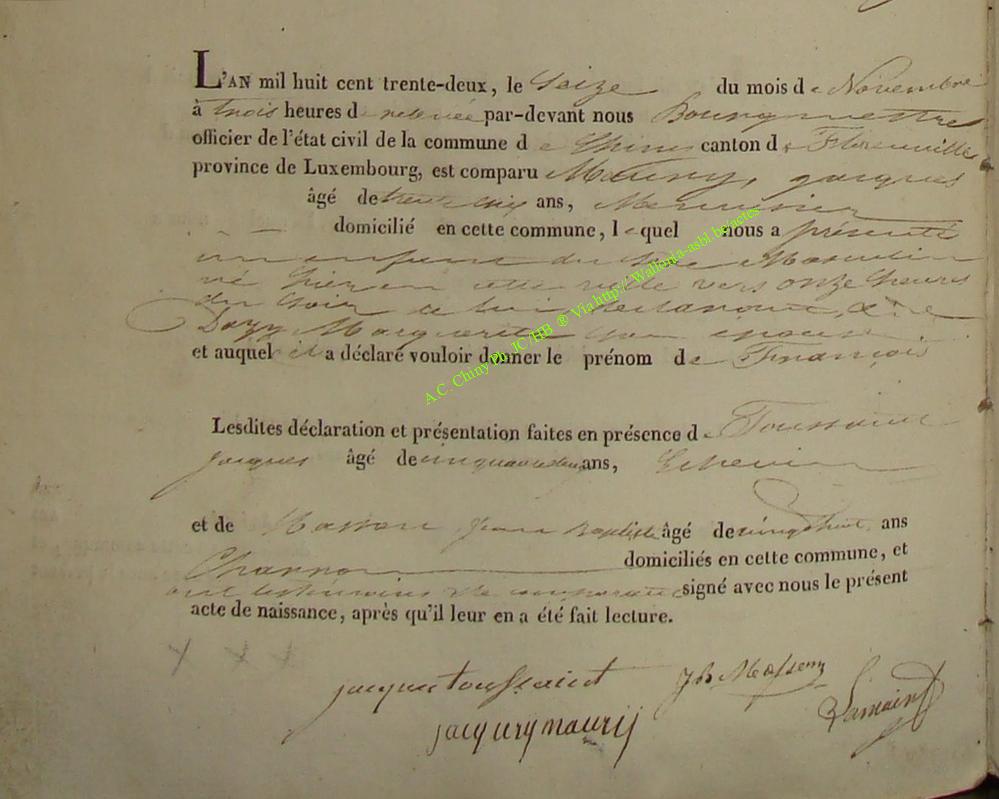 L'AN mil huit cent trente-deux, le Seize du mois de Novembre
à trois heures de relevée par-devant nous Bourgmestre
officier de l'état civil de la commune de Chiny canton de Florenville
province de Luxembourg, est comparu Mauny, jacques
âgé de trente six ans, Menuisier
domicilié en cette commune, lequel nous a présenté
un enfant du Sexe Masculin
né hier en cette ville vers onze heures
du Soir de lui declarant, & de
Dozy Marguerite son épouse
et auquel il a déclaré vouloir donner le prénom de François
Lesdites déclaration et présentation faites en présence de Toussaint
jacques âgé de ans, Echevin
et de Masson jean Baptiste âgé de vingt huit ans
Charron domiciliés en cette commune, et
ont les temoins & le comparant signé avec nous le présent
acte de naissance, après qu'il leur en a été fait lecture.
x x x
jacque toussaint JB Masson
jacques mauny
A.C. Chiny Ph. JC/HB ® Via http://Wallonia-asbl.be/actes